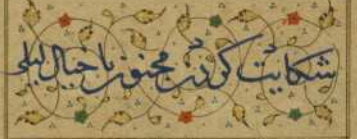 شکایت کردن مجنون با خیال لیلی